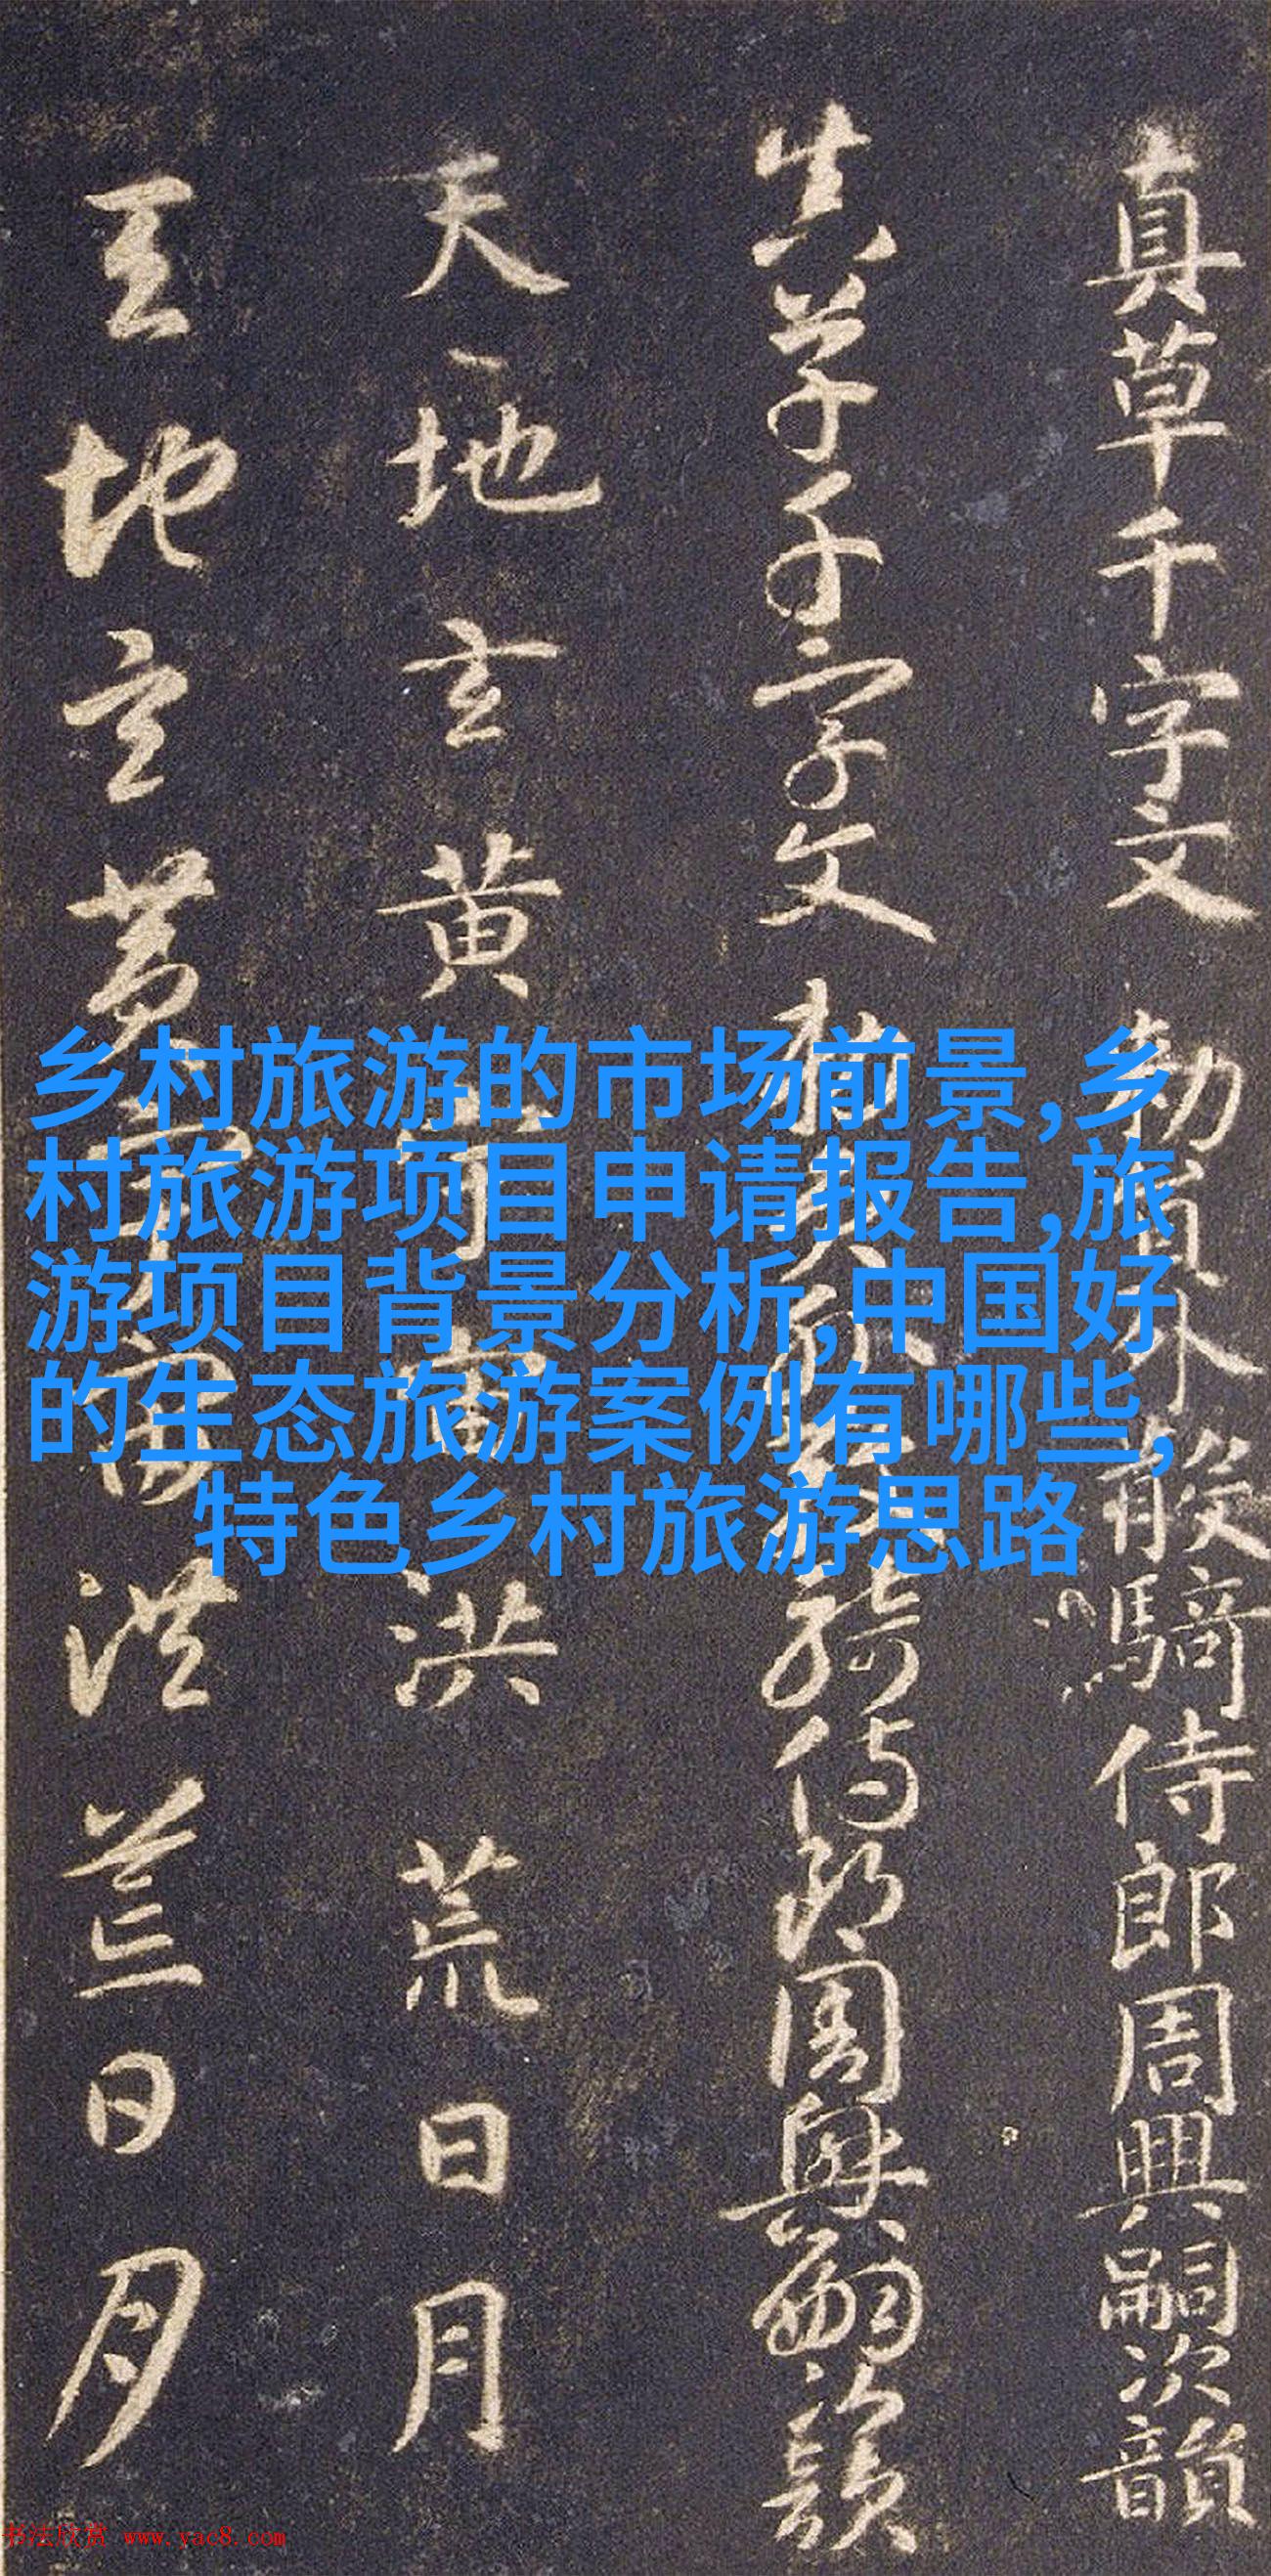 真草千字文 勑員外散騎侍郎周興嗣次韻
真草千字文 勑員外散騎侍郎周興嗣次韻
天地玄黃宇宙洪荒日月
天地玄黃宇宙洪荒日月
乡村旅游的市场前景,乡
村旅游项目申请报告,旅
游项目背景分析,中国好
的生态旅游案例有哪些,
特色乡村旅游思路
书法欣赏 www.yac8.com